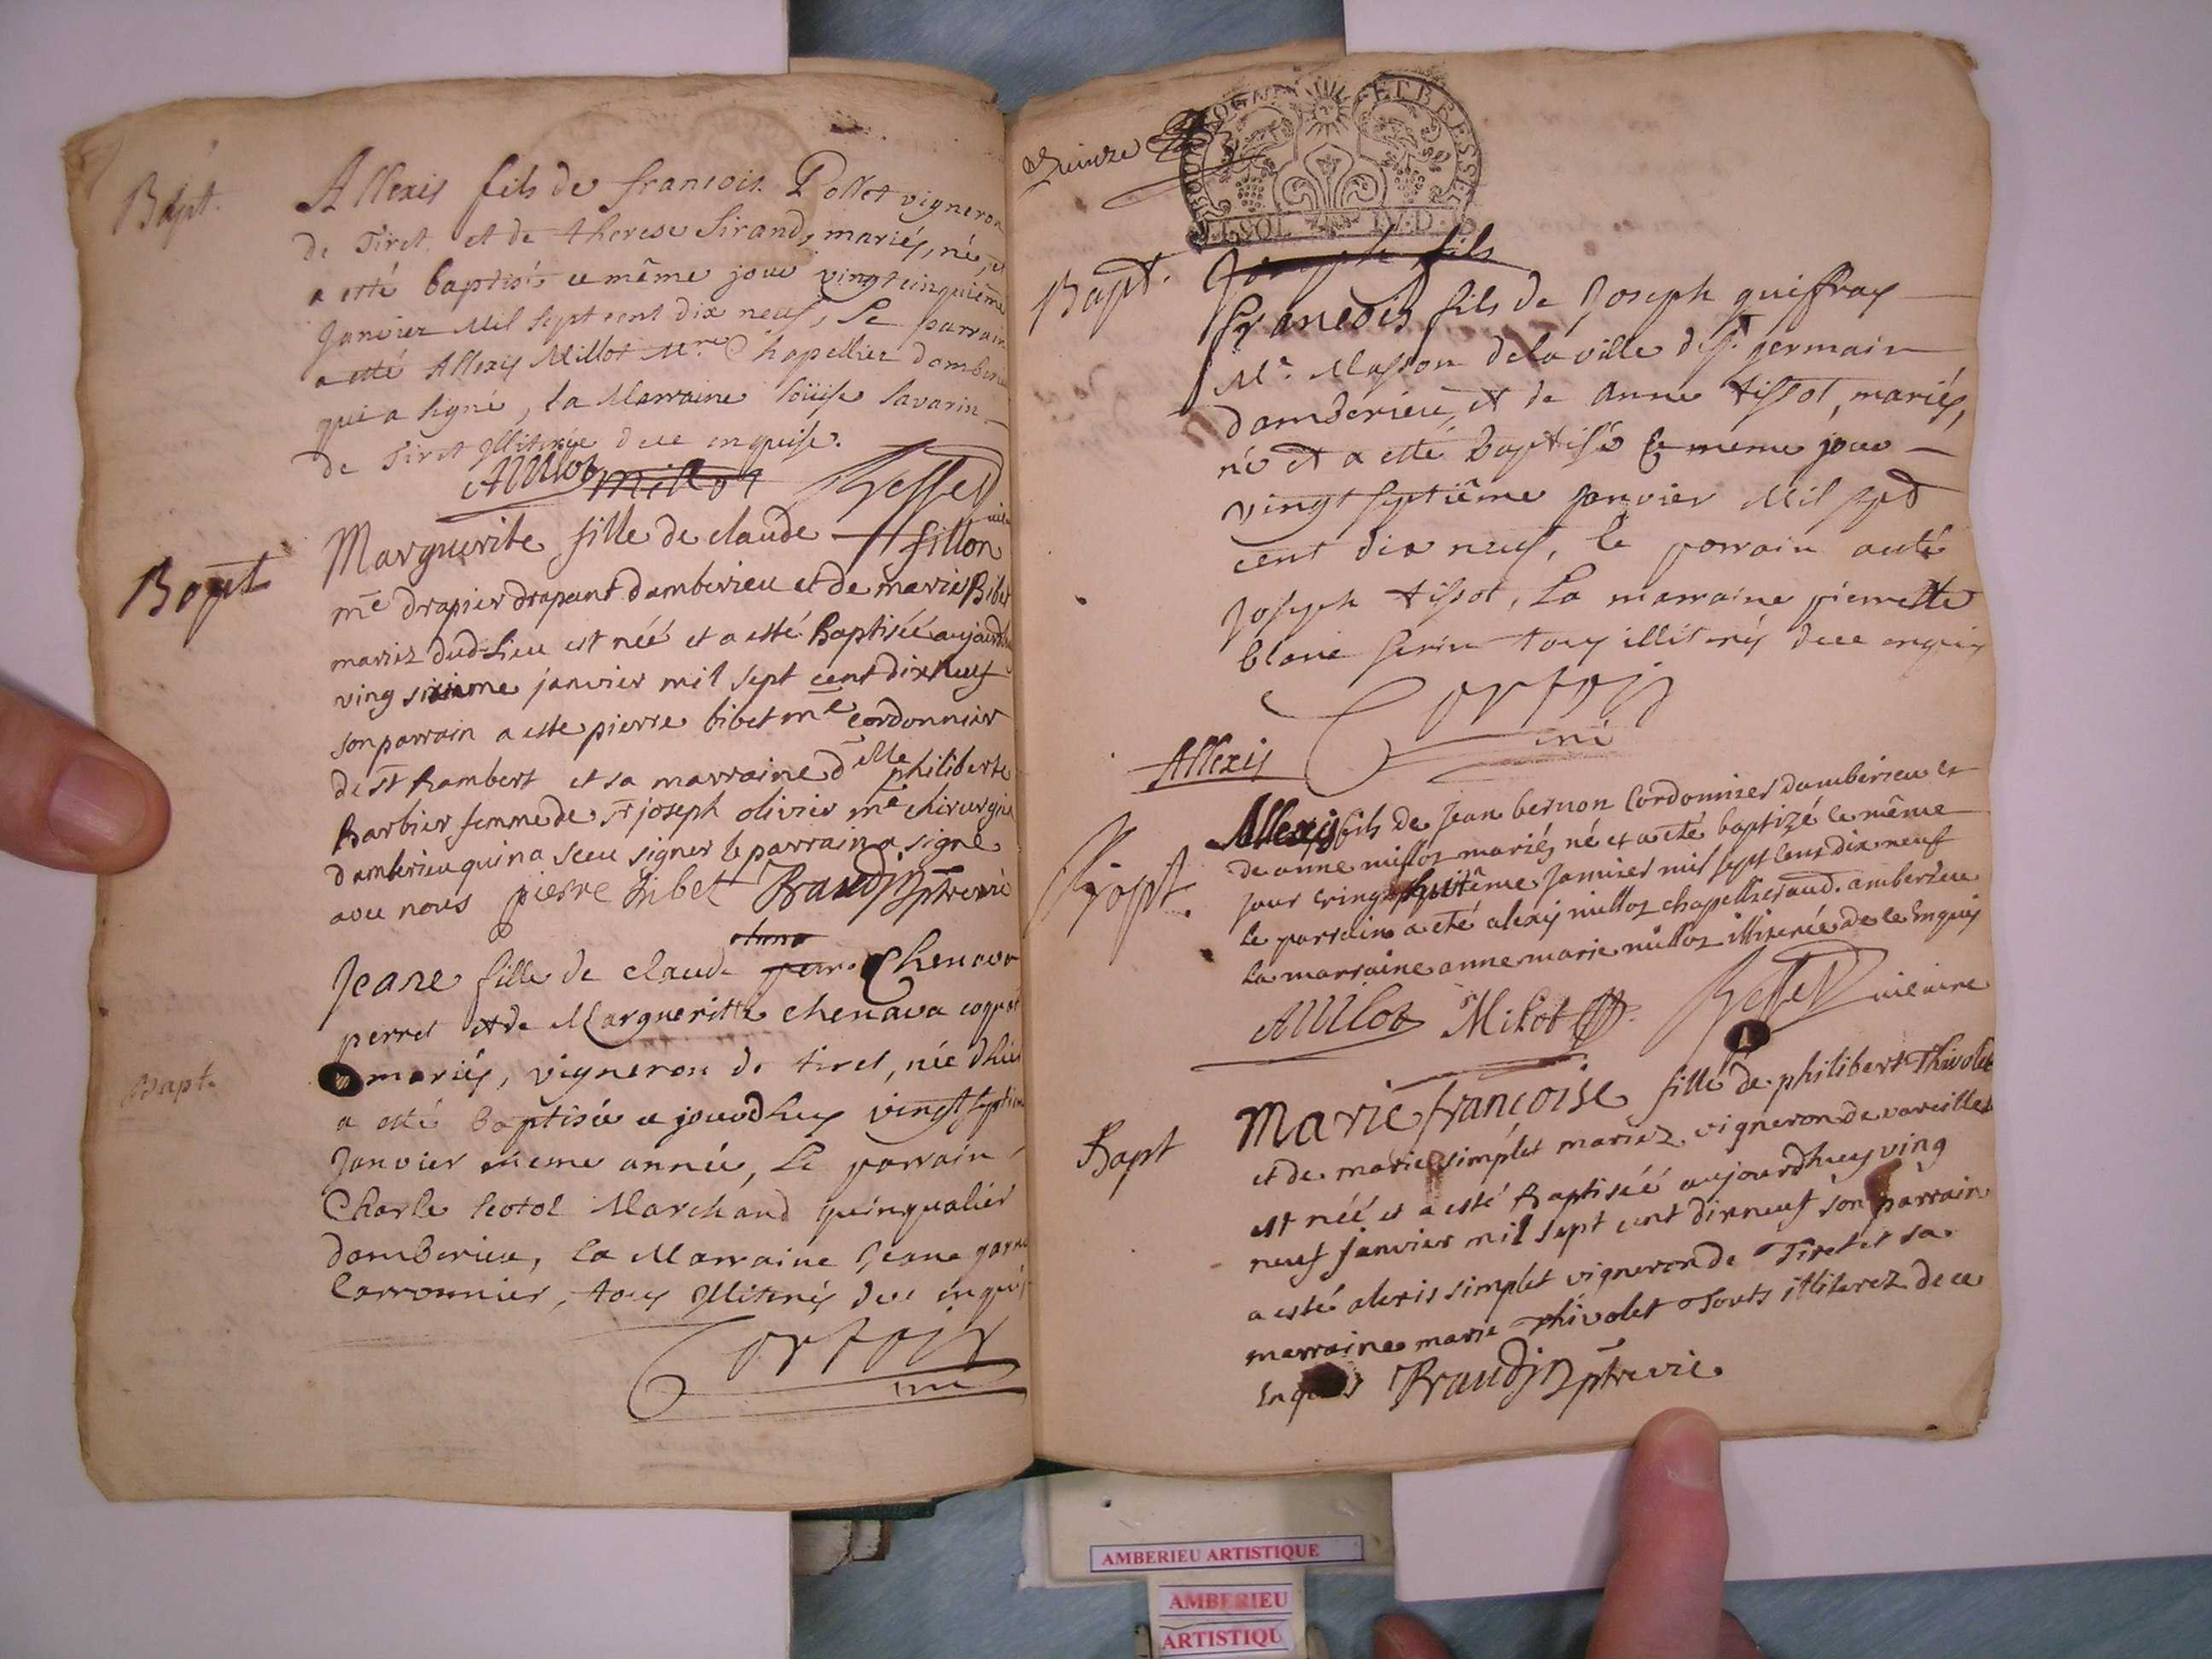 Bapt.
Allexis fils de francois Pollet vigneron
de Tiret et de therese Sirand, mariés, né, et
a esté baptisé ce même jour vingt cinquième
Janvier Mil sept cent dix neuf, Le parrain
a esté Allexis Millot Mre Chapellier damberieu
qui a signé, la Marraine Loüise Savarin
de Tiret Illiterée de ce enquise.
AMillot millot
Bapt
Marguerite fille de claude fillon
me drapier drapant damberieu et de marie Bibet
mariez dud. Lieu est néé et a esté Baptiséé aujourdhuy
ving sixieme janvier mil sept cent dix neuf
son parrain a esté pierre bibet me cordonnier
de st Rambert et sa marraine delle philiberte
Barbier femme de sr joseph olivier me chirurgien
damberieu qui na sceu signer le parrain a signé
avec nous pierre Bibet Braudin ptre vic
Bapt.
Jeane fille de claude Chenava
perret et de Margueritte chenava coquet
mariés, vigneron de tiret, née d'hier
a esté Baptisée ce jourdhuy vingt septième
Janvier meme année, Le parrain
Charle Marchand quinqualier
damberieu, La Marraine Jeane
Carronnier, tous Illiterés de ce enquis
Cortois
vic
Quinze
BOURGOGNE ET BRESSE
I. SOL. IV. D.
Bapt.
Joseph fils
francois fils de Joseph guiffray
Mr. Masson de la ville de St. germain
damberieu, et de anne tissot, mariés,
né et a esté baptisé le meme jour
vingt septième janvier Mil sept
cent dix neuf, le parrain a esté
Joseph tissot, La marraine pierrette
blanc tous illiterés de ce enquis
Cortois
vic
Allexis
Bapt.
Allexis fils de Jean bernon Cordonnier damberieu et
de anne millot mariés né et a eté baptizé le même
jour vingt huitième Janvier mil sept cent dix neuf
le parrain a eté alexis millot chapellier aud. amberieu
la marraine anne marie millot illiterée de ce Enquis
AMillot Milot vicaire
Bapt
Marie françoise fille de philibert Thivolet
et de marie simplet mariez vigneron de vareilles
est néé et a esté Baptiséé aujourdhuy ving
neuf janvier mil sept cent dix neuf son parrain
a esté alexis simplet vigneron de Tiret et sa
marraine marie Thivolet Touts illiterez de ce
Enquis Braudin ptre vic
AMBERIEU ARTISTIQUE
AMBERIEU
ARTISTIQU